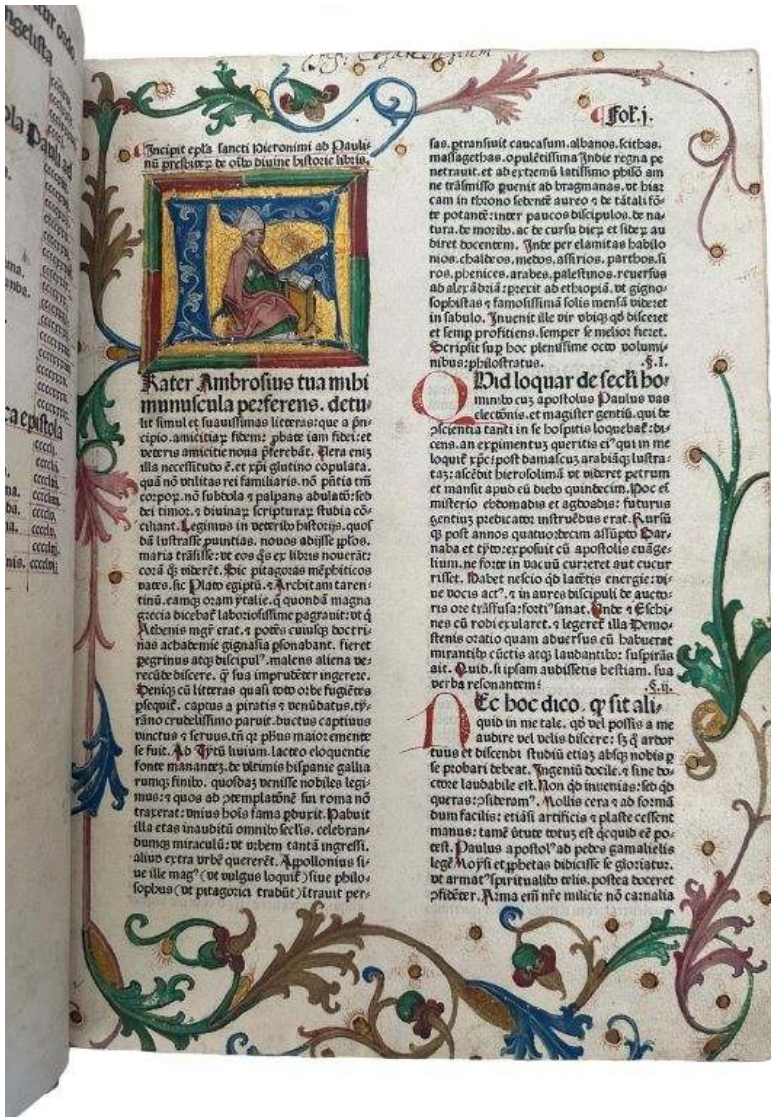 Fol. j.
Incipit epl̃a sancti Hieronimi ad Pauli-
nũ presbiteꝝ de oĩbꝰ divine historie libris.
Frater Ambrosius tua mihi
munuscula perferens. detu-
lit simul et suauissimas litteras: que a p̃n-
cipio. amicitiaꝝ fidem: ꝓbate iam fidei: et
veteris amicitie noua p̃ferebãt. Uera enĩ
illa necessitudo ẽ. et xp̃i glutino copulata.
quã nõ vtilitas rei familiaris. nõ p̃ñtia tm̃
corpoꝝ. nõ subdola ⁊ palpans adulatõ: sed
dei timor. ⁊ diuinaꝝ scripturaꝝ studia cõ-
ciliant. Legimus in veteribꝰ historijs. quosdã
lustrasse ꝓuintias. nouos adijsse pp̃los.
maria trãsisse: vt eos q̃s ex libris nouerãt:
corã qꝫ viderẽt. Sic pitagoras mẽphiticos
vates. sic Plato egiptũ. ⁊ Architam taren-
tinũ. eamqꝫ oram ytalie. q̃ quondã magna
grecia dicebat̃ laboriosissime pagrauit: vt q̃
Athenis mgr̃ erat. ⁊ potẽs cuiusqꝫ doctri-
nas achademie gignasia ꝑsonabant. fieret
peregrinus atqꝫ discipulꝰ. malens aliena ve-
recũde discere. q̃ sua imprudẽter ingerere.
Deniqꝫ cũ litteras quasi toto orbe fugiẽtes
ꝑsequit̃. captus a piratis ⁊ venũdatus. ty-
rãno crudelissimo paruit. ductus captiuus
vinctus ⁊ seruus. tñ qꝛ ph̃us maior emente
se fuit. Ad Tytũ liuium. lacteo eloquentie
fonte manantẽ. de vltimis hispanie gallia
rumqꝫ finibꝰ. quosdã venisse nobiles legi-
mus: ⁊ quos ad ↄtemplatõnẽ sui roma nõ
traxerat: vnius hoĩs fama ꝑduxit. Habuit
illa etas inauditũ omnibꝰ seclĩs. celebran-
dumqꝫ miraculũ: vt vrbem tantã ingressi.
aliud extra vrbẽ quererẽt. Appollonius si-
ue ille magꝰ (vt vulgus loquit̃) siue philo-
sophus (vt pitagorici tradũt) ĩtrauit per-
sas. ꝑtransiuit caucasum. albanos. scithas.
massagethas. opulẽtissima Indie regna pe
netrauit. et ad extremũ latissimo phisõ am
ne trãsmisso ꝑuenit ad bragmanas. vt hiar
cam in throno sedentẽ aureo ⁊ de tãtali fõ-
te potantẽ: inter paucos discipulos. de na-
tura. de moribꝰ. ac de cursu dieꝝ et sideꝝ au
diret docentem. Inde per elamitas babilo
nios. chaldeos. medos. assirios. parthos. si
ros. phenices. arabes. palestinos. reuersus
ad alexãdriã: ꝑrexit ad ethiopiã. vt gigno-
sophistas ⁊ famosissimã solis mensã videret
in sabulo. Inuenit ille vir vbiqꝫ qđ disceret
et semꝑ proficiens. semper se melior fieret.
Scripsit suꝑ hoc plenissime octo volumi-
nibus: philostratus. .§.I.
Quid loquar de secl̃i ho-
minibꝰ cuꝫ apostolus Paulus vas
electõnis. et magister gentiũ. qui de
ↄscientia tanti in se hospitis loquebat̃: di-
cens. an expimentuꝫ queritis eiꝰ qui in me
loquit̃ xp̃c: post damascuꝫ arabiãqꝫ lustra-
taꝫ: ascẽdit hierosolimã vt videret petrum
et mansit apud eũ diebꝰ quindecim. Hoc eĩ
misterio ebdomadis et agdoadis: futurus
gentiuꝫ predicator instruẽdus erat. Rursũ
qꝫ post annos quatuordecim assũpto Bar-
naba et tyto: exposuit cũ apostolis euãge-
lium. ne forte in vacuũ curreret aut cucur
risset. Habet nescio qđ latẽtis energie: vi-
ue vocis actꝰ. ⁊ in aures discipuli de aucto-
ris ore trãsfusa: fortiꝰ sanat. Unde ⁊ Eschi-
nes cũ rodi exularet. ⁊ legeret̃ illa Demo-
stenis oratio quam aduersus eũ habuerat
mirantibꝰ cũctis atqꝫ laudantibꝰ: suspirãs
ait. Quid. si ipsam audissetis bestiam. sua
verba resonantem: .§.ij.
Nec hoc dico. qꝫ sit ali-
quid in me tale. qđ vel possis a me
audire vel velis discere: sꝫ q̃ ardor
tuus et discendi studiũ etiaꝫ absqꝫ nobis ꝑ
se probari debeat. Ingeniũ docile. ⁊ sine do-
ctore laudabile est. Non qđ inuenias: sed qđ
queras: ↄsideramꝰ. Mollis cera ⁊ ad formã
dum facilis: etiãsi artificis ⁊ plaste cessent
manus: tamẽ v̾tute totuꝫ est q̃cquid eẽ po-
test. Paulus apostolꝰ ad pedes gamalielis
legẽ Moysi et ꝓphetas didicisse se gloriatur.
vt armatꝰ spiritualibꝰ telis. postea doceret
ↄfidẽter. Arma em̃ nr̃e milicie nõ carnalia